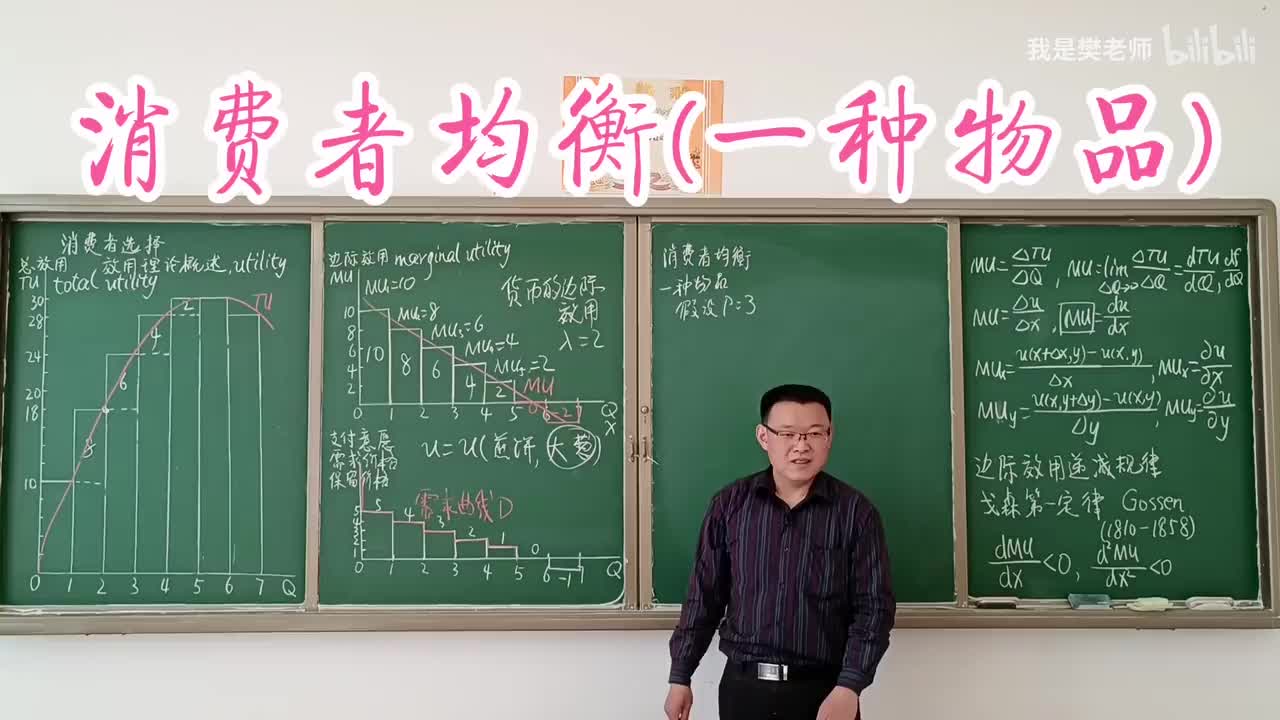 我是樊老师 bilibili
消费者均衡(一种物品)
消费者选择
总效用 效用理论概述,utility
TU total utility
30
28
24
20
18
10
0 1 2 3 4 5 6 7 Q
8
6
4
2
TU
边际效用 marginal utility
MU
MU=10
MU₂=8
MU₃=6
MU₄=4
MU₅=2
货币的边际
效用
λ=2
10
8
6
4
2
10 8 6 4 2 0 -2
MU
1 2 3 4 5 6 7 Q
X
支付意愿
需求价格
保留价格
u=u(煎饼,大葱)
需求曲线D
5 4 3 2 1 0 -1
5
4
3
2
1
0 1 2 3 4 5 6 7 Q
消费者均衡
一种物品
假设P=3
MU=ΔTU/ΔQ, MU=lim ΔQ→0 ΔTU/ΔQ=dTU/dQ, df/dQ
MU=Δu/Δx, MU=du/dx
MUx=u(x+Δx,y)-u(x,y)/Δx, MUx=∂u/∂x
MUy=u(x,y+Δy)-u(x,y)/Δy, MUy=∂u/∂y
边际效用递减规律
戈森第一定律 Gossen
(1810-1858)
dMU/dx<0, d²MU/dx²<0